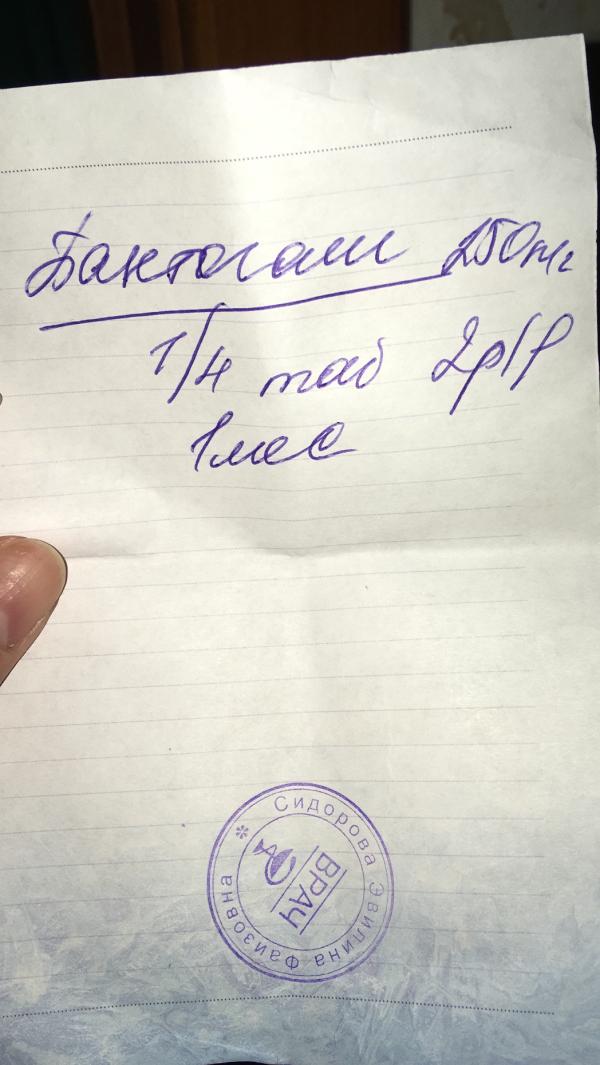 Пантогам 250мг
1/4 таб 2р/д
1мес
Сидорова Эвилина Фаизовна *
ВРАЧ